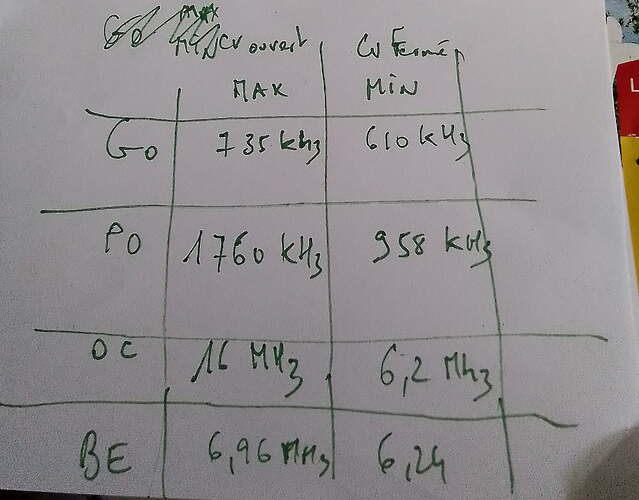 CV ouvert CV Fermé
MAX MIN
GO 735 kHz 610 kHz
PO 1760 kHz 958 kHz
OC 16 MHz 6,2 MHz
BE 6,96 MHz 6,24